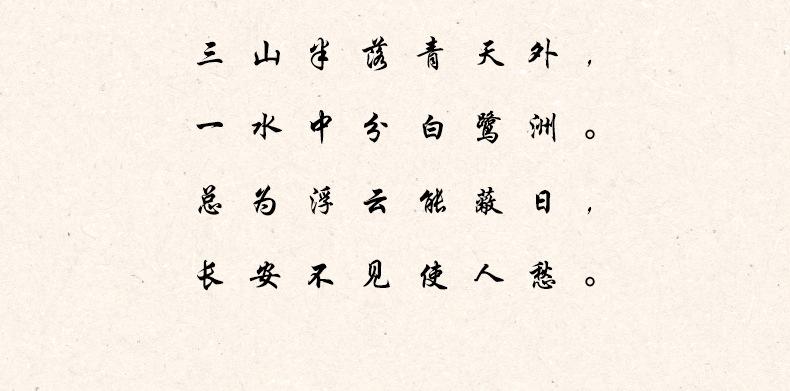 三山半落青天外，
一水中分白鹭洲。
总为浮云能蔽日，
长安不见使人愁。